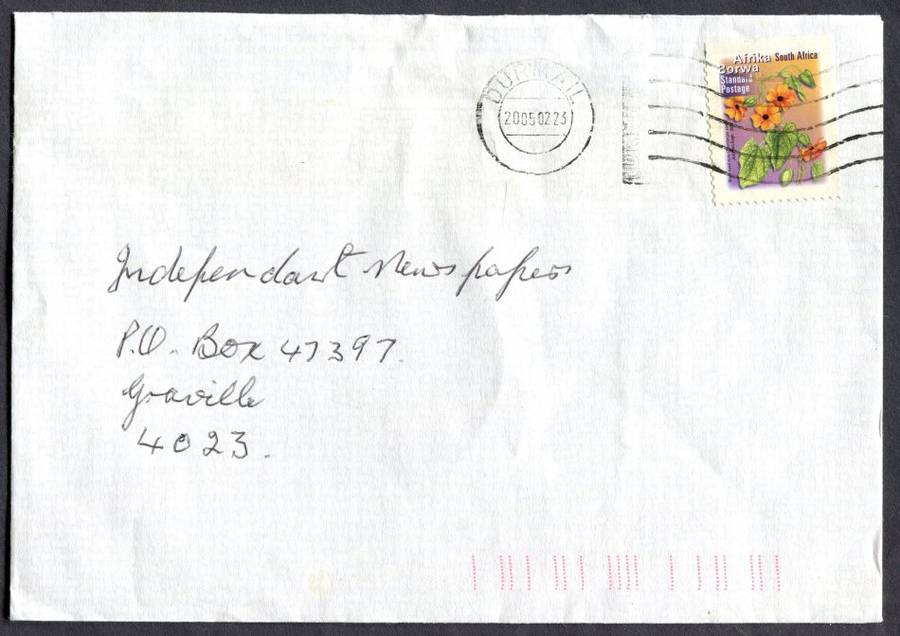 DURMAIL
2005 02 23
Afrika South Africa
Borwa
Standard
Postage
Independant Newspapers
P.O. Box 47397.
Graville
4023.